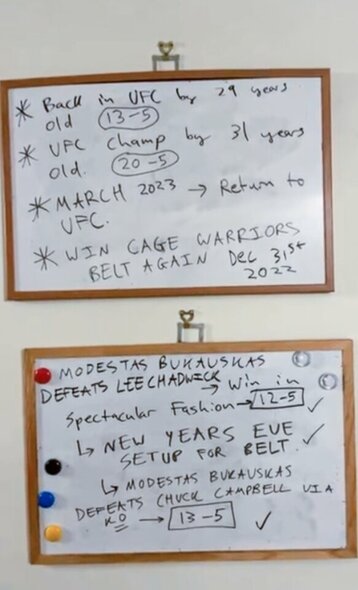 * Back in UFC by 29 years
old (13-5)
* UFC champ by 31 years
old. (20-5)
* MARCH 2023 → Return to
UFC.
* WIN CAGE WARRIORS
BELT AGAIN Dec 31st
2022
MODESTAS BUKAUSKAS
DEFEATS LEE CHADWICK → Win in
Spectacular Fashion → 12-5 ✓
↳ NEW YEARS EVE ✓
SETUP FOR BELT.
↳ MODESTAS BUKAUSKAS
DEFEATS CHUCK CAMPBELL VIA
KO → 13-5 ✓